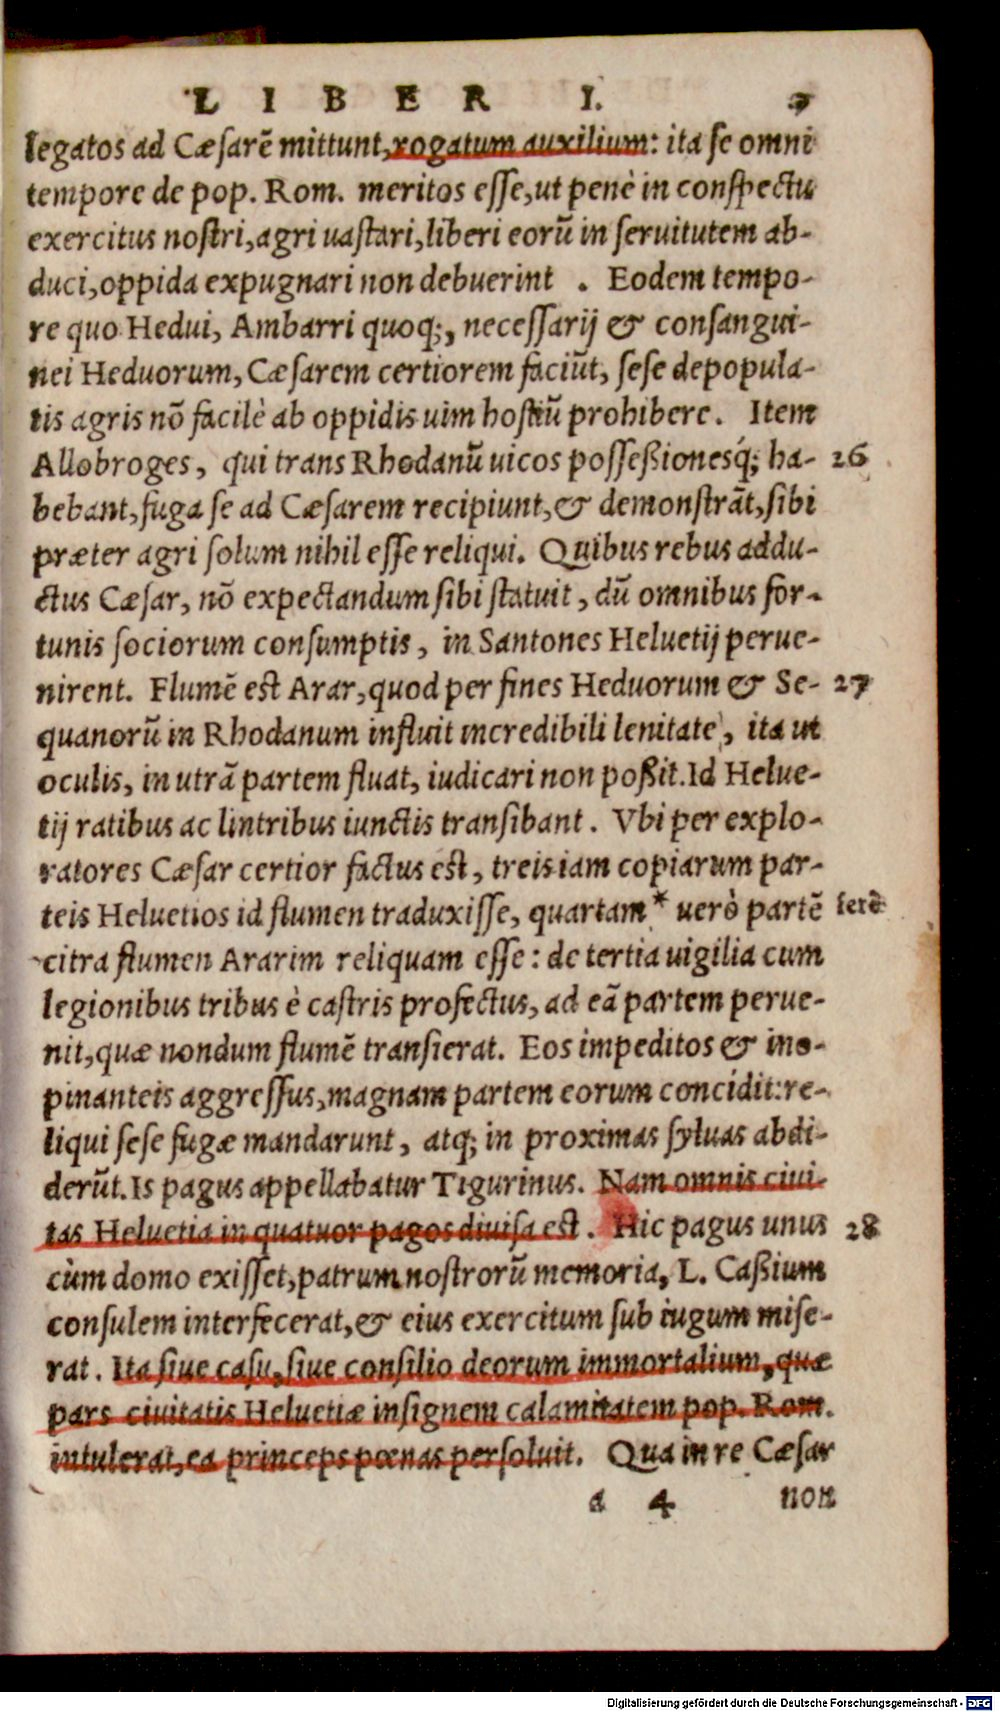 LIBER I. 9
legatos ad Cæsarẽ mittunt, rogatum auxilium: ita se omni
tempore de pop. Rom. meritos esse, ut penè in conspectu
exercitus nostri, agri uastari, liberi eorũ in seruitutem ab-
duci, oppida expugnari non debuerint . Eodem tempo-
re quo Hedui, Ambarri quoq;, necessarij & consangui-
nei Heduorum, Cæsarem certiorem faciũt, sese depopula-
tis agris nõ facilè ab oppidis uim hostiũ prohibere. Item
Allobroges, qui trans Rhodanũ uicos possessionesq́; ha- 26
bebant, fuga se ad Cæsarem recipiunt, & demonstrãt, sibi
præter agri solum nihil esse reliqui. Quibus rebus addu-
ctus Cæsar, nõ expectandum sibi statuit, dũ omnibus for-
tunis sociorum consumptis, in Santones Heluetij perue-
nirent. Flumẽ est Arar, quod per fines Heduorum & Se- 27
quanorũ in Rhodanum influit incredibili lenitate, ita ut
oculis, in utrã partem fluat, iudicari non poßit. Id Helue-
tij ratibus ac lintribus iunctis transibant. Vbi per explo-
ratores Cæsar certior factus est, treis iam copiarum par-
teis Heluetios id flumen traduxisse, quartam * uerò partẽ ferè
citra flumen Ararim reliquam esse: de tertia uigilia cum
legionibus tribus è castris profectus, ad eã partem perue-
nit, quæ nondum flumẽ transierat. Eos impeditos & ino-
pinanteis aggressus, magnam partem eorum concidit: re-
liqui sese fugæ mandarunt, atq; in proximas syluas abdi-
derũt. Is pagus appellabatur Tigurinus. Nam omnis ciui-
tas Heluetia in quatuor pagos diuisa est. Hic pagus unus 28
cùm domo exisset, patrum nostrorũ memoria, L. Caßium
consulem interfecerat, & eius exercitum sub iugum mise-
rat. Ita siue casu, siue consilio deorum immortalium, quæ
pars ciuitatis Heluetiæ insignem calamitatem pop. Rom.
intulerat, ea princeps pœnas persoluit. Qua in re Cæsar
a 4 non
Digitalisierung gefördert durch die Deutsche Forschungsgemeinschaft - DFG